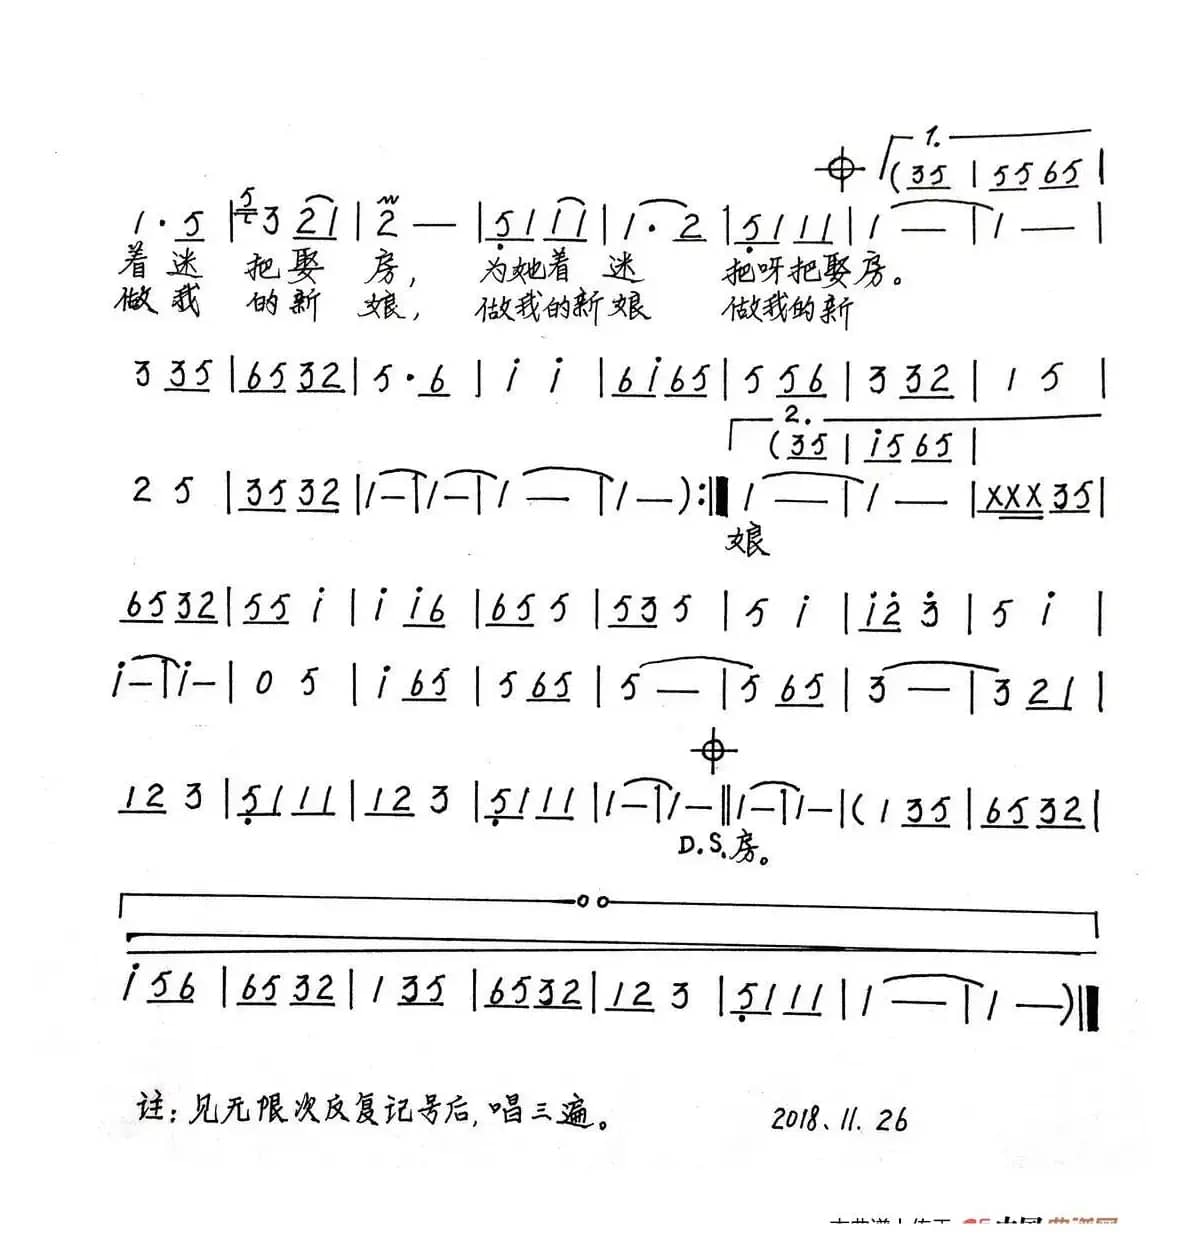 1.
(35 | 55 65 |
1·5 | 5 3 21 | 2 — | 51 11 | 1·2 | 51 11 | 1 — | 1 — |
着迷 把娶 房, 为她着 迷 把呀把娶房。
做我 的新 娘, 做我的新 娘 做我的新
3 35 | 65 32 | 5·6 | i i | 6i 65 | 5 56 | 3 32 | 1 5 |
2.
(35 | i5 65 |
2 5 | 35 32 | 1 — | 1 — | 1 — | 1 —) :‖ 1 — | 1 — | XXX 35 |
娘
65 32 | 55 i | i i6 | 65 5 | 53 5 | 5 i | i2 3 | 5 i |
i — | i — | 0 5 | i 65 | 5 65 | 5 — | 5 65 | 3 — | 3 21 |
12 3 | 51 11 | 12 3 | 51 11 | 1 — | 1 — ‖ 1 — | 1 — | (1 35 | 65 32 |
D.S. 房。
i 56 | 65 32 | 1 35 | 65 32 | 12 3 | 51 11 | 1 — | 1 —) ‖
註: 见无限次反复记号后, 唱三遍。 2018、11. 26